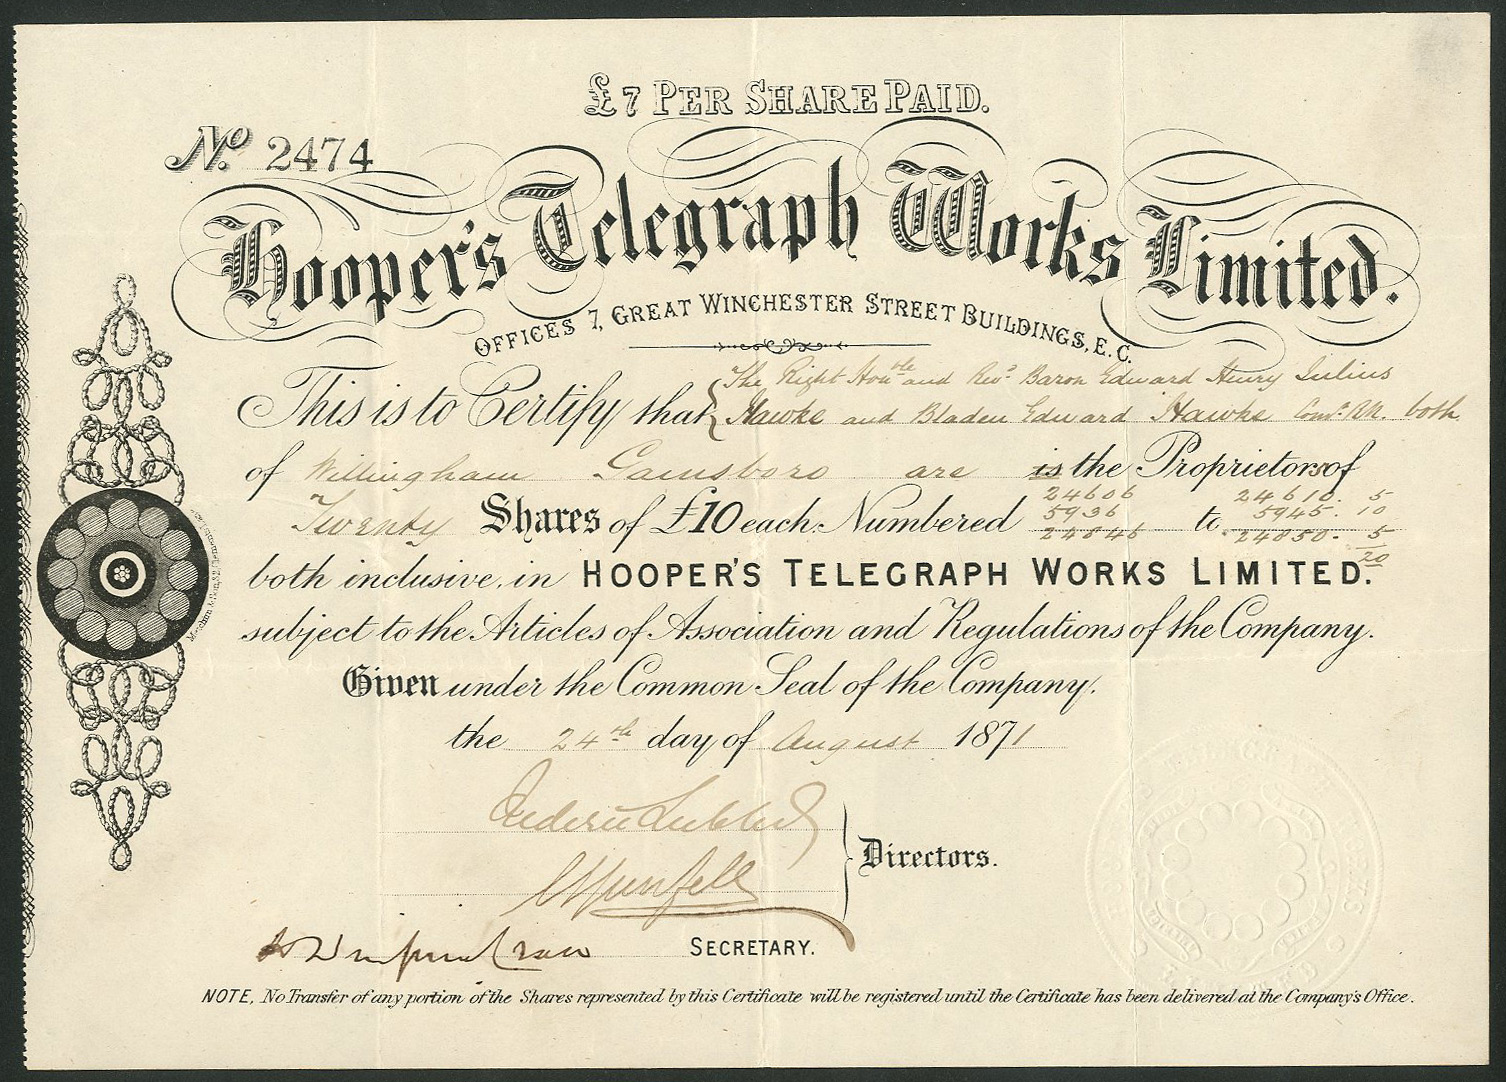 £7 PER SHARE PAID.
No. 2474
Hooper's Telegraph Works Limited.
OFFICES 7, GREAT WINCHESTER STREET BUILDINGS, E.C.
The Right Honble and Revd Baron Edward Henry Julius
This is to Certify that Hawke and Bladen Edward Hawke Comr. RN. both
of Willingham Gainsboro are is the Proprietors of
24606 24610. 5
Twenty Shares of £10 each. Numbered 5936 to 5945. 10
24846 24850. 5
20
both inclusive, in HOOPER'S TELEGRAPH WORKS LIMITED.
subject to the Articles of Association and Regulations of the Company.
Given under the Common Seal of the Company,
the 24th day of August 1871
Directors.
SECRETARY.
NOTE, No Transfer of any portion of the Shares represented by this Certificate will be registered until the Certificate has been delivered at the Company's Office.